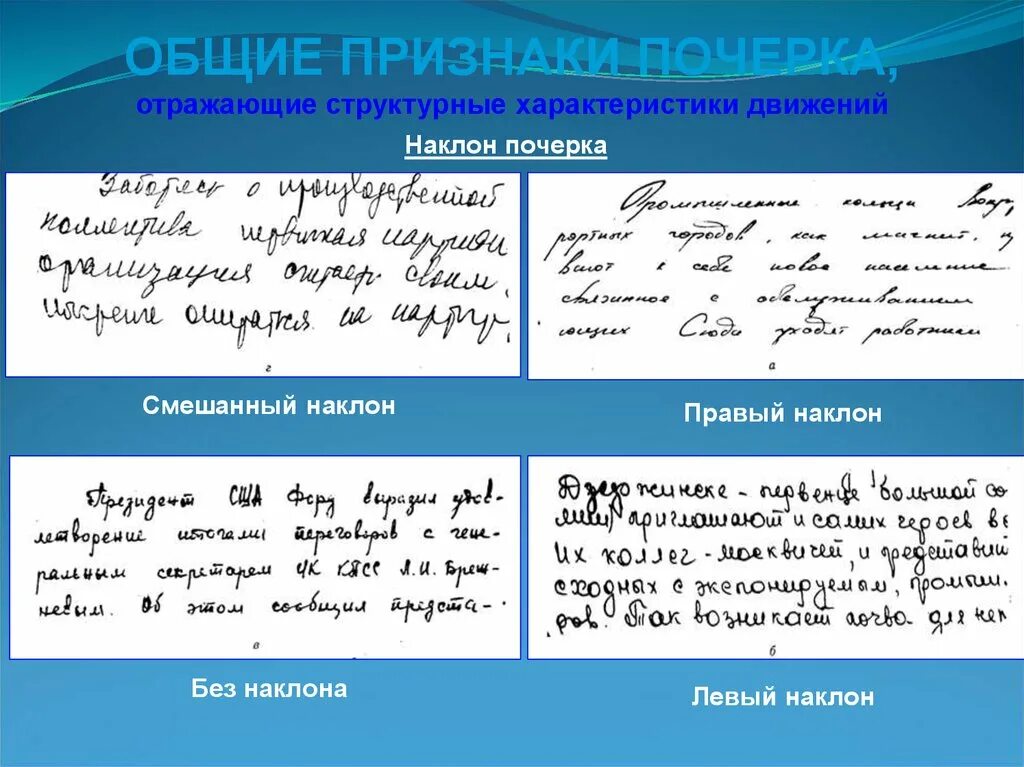 ОБЩИЕ ПРИЗНАКИ ПОЧЕРКА,
отражающие структурные характеристики движений
Наклон почерка
Заботясь о производственной
коллектива первичная партийн
организация считает своим,
опираться на партгру
г
Смешанный наклон
Промышленные кольца вокр
портных городов, как магнит, п
вают к себе новое население
связанное с обслуживанием
ющих Сюда уходят работники
а
Правый наклон
Президент США Форд выразил удов-
летворение итогами переговоров с гене-
ральным секретарем ЦК КПСС Л.И. Бреж-
невым. Об этом сообщил предста-
в
Без наклона
Дзержинске - первенце большой со
мии, приглашают и самих героев ве
Их коллег - москвичей, и представит
сходных с экспонируемым, промыш.
ров. Так возникает почва для неп
б
Левый наклон